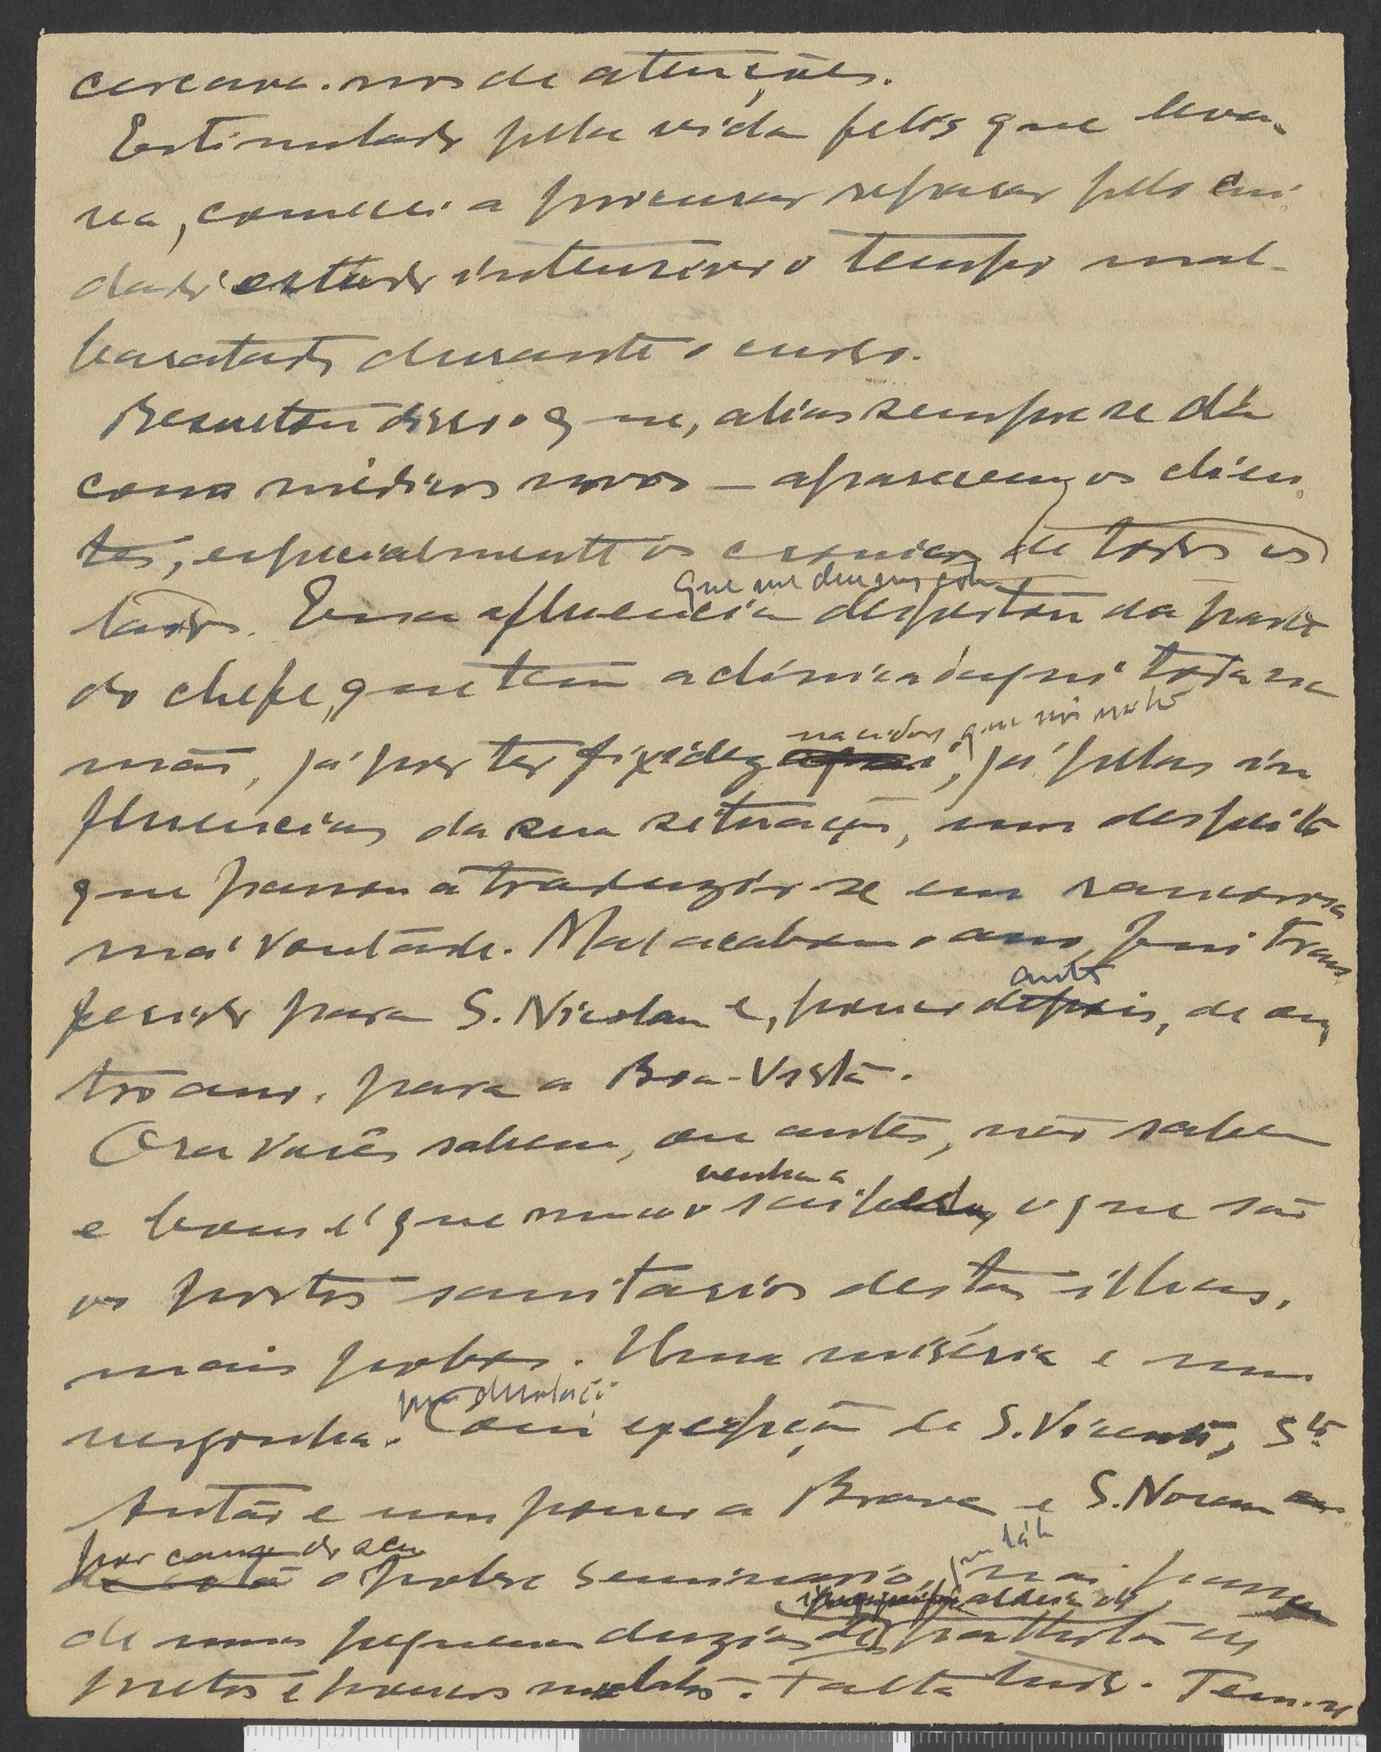 cercava-nos de atenções.
Estimulado pela vida felis que leva-
va, comecei a procurar reparar pelo cui
dado estudo intensivo o tempo mal-
baratado durante o curso.
Resultou disso o que, alias sempre se dá
com médicos novos — aparecem os clien
tes, especialmente os cronicos de todos os
lados. Essa afluencia despertou da parte
que me deu
do chefe, que tem a clinica daqui toda na
mão, já por ter fixidez, já pelas in
nacidos que
fluencias da sua situação, um despeito
que passou a traduzir-se em rancorosa
má vontade. Mal acabou o ano, fui trans
ferido para S. Nicolau e, pouco depois, de ou
antes
tro ano, para a Boa-Vista.
Ora vocês sabem, ou antes, não sabem
e bom é que nunca o
venham a
o que são
os portos sanitarios destas ilhas,
mais pobres. Uma miséria e uma
vergonha. Com excepção de S. Vicente, Sto.
Antão e um pouco a Brava e S. Nicolau
por causa do seu
o pobre Seminario,
de uma pequena duzia de
pretos e poucos mulatos. Falta tudo. Tem-se